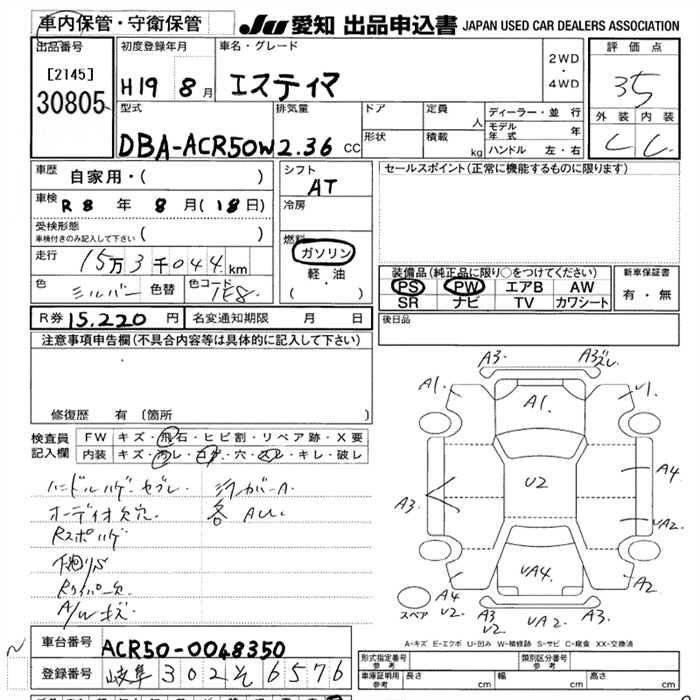 車内保管・守衛保管
JU 愛知 出品申込書 JAPAN USED CAR DEALERS ASSOCIATION
出品番号 初度登録年月 車名・グレード 評価点
[2145]
30805
H19 8月 エスティマ
2WD
・
4WD
35
型式 排気量 ドア 定員 人 ディーラー・並行 外装 内装
DBA-ACR50W 2.36 CC
形状 積載 kg
モデル年式 年
ハンドル 左・右
C C
車歴 自家用・( )
シフト AT
セールスポイント(正常に機能するものに限ります)
車検 R8 年 8月(18日)
冷房
受検形態
車検付きのみ記入して下さい ( )
燃料
ガソリン
軽・油
( )
走行 15万3千044km
装備品(純正品に限り○をつけてください) 新車保証書
PS PW エアB AW
SR ナビ TV カワシート
有・無
色 シルバー 色替 色コード 1E8
R券 15.220 円 名変通知期限 月 日
後日品
注意事項申告欄(不具合内容等は具体的に記入して下さい)
修復歴 有 〔箇所 〕
検査員記入欄
FW キズ・飛石・ヒビ割・リペア跡・X要
内装 キズ・汚レ・コゲ・穴・スレ・キレ・破レ
ハンドルハゲ
オーディオ欠穴 各
下廻りS
A/Wキズ
A3 A3
A1 A1 U1
A3 U2 A4
UA2
A4 U2 UA4 A2
スペア
A3 U2 UA2 A3
A-キズ E-エクボ U-凹み W-補修跡 S-サビ C-腐食 XX-交換済
車台番号 ACR50-0048350
登録番号 岐阜 302 そ 6576
形式指定番号 参考 類別区分番号 参考
車庫証明用 参考 長さ cm 幅 cm 高さ cm